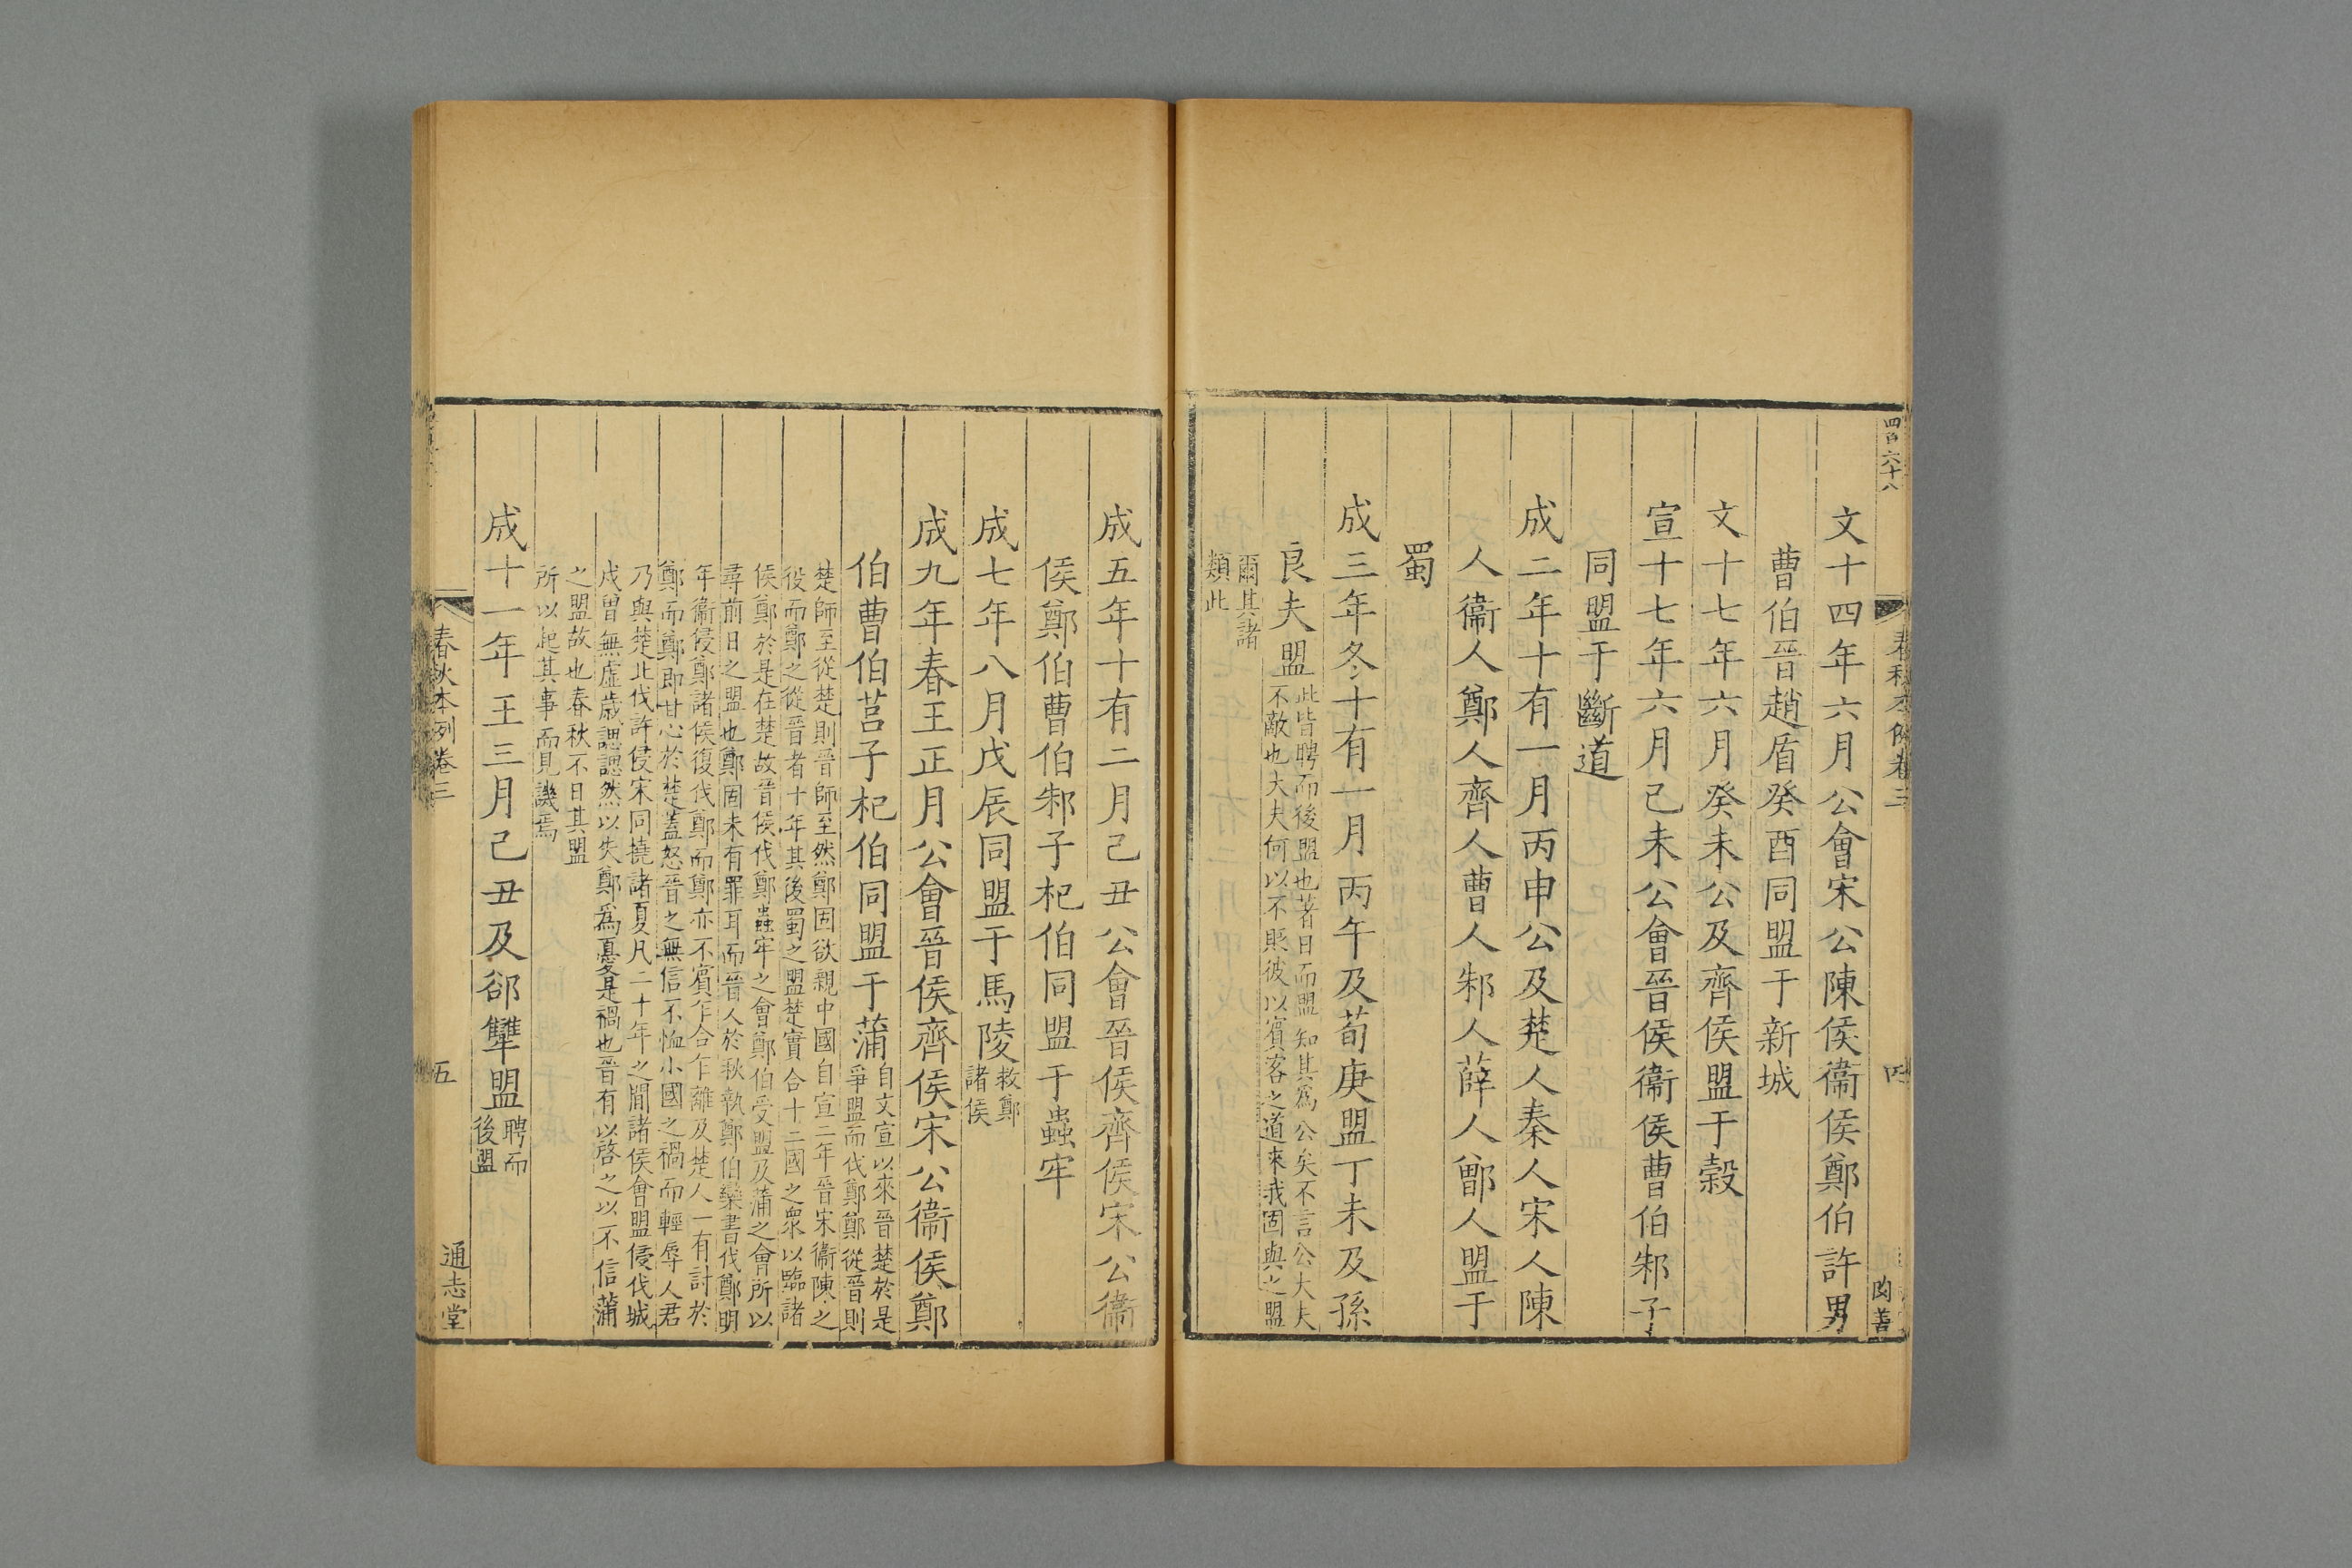 四百六十八
春秋本例卷三
四
文十四年六月公會宋公陳侯衞侯鄭伯許男
曹伯晉趙盾癸酉同盟于新城
文十七年六月癸未公及齊侯盟于穀
宣十七年六月己未公會晉侯衞侯曹伯邾子
同盟于斷道
成二年十有一月丙申公及楚人秦人宋人陳
人衞人鄭人齊人曹人邾人薛人鄫人盟于
蜀
成三年冬十有一月丙午及荀庚盟丁未及孫
良夫盟
此皆聘而後盟也著日而盟知其爲公矣不言公大夫
不敵也大夫何以不貶彼以賓客之道來我固與之盟
爾其諸
類此
成五年十有二月己丑公會晉侯齊侯宋公衞
侯鄭伯曹伯邾子杞伯同盟于蟲牢
成七年八月戊辰同盟于馬陵
救鄭
諸侯
成九年春王正月公會晉侯齊侯宋公衞侯鄭
伯曹伯莒子杞伯同盟于蒲
自文宣以來晉楚於是
爭盟而伐鄭鄭從晉則
楚師至從楚則晉師至然鄭固欲親中國自宣二年晉宋衞陳之
役而鄭之從晉者十年其後蜀之盟楚實合十二國之衆以臨諸
侯鄭於是在楚故晉侯伐鄭蟲牢之會鄭伯受盟及蒲之會所以
尋前日之盟也鄭固未有罪耳而晉人於秋執鄭伯欒書伐鄭明
年衞侵鄭諸侯復伐鄭而鄭亦不賓乍合乍離及楚人一有討於
鄭而鄭即甘心於楚蓋怒晉之無信不恤小國之禍而輕辱人君
乃與楚北伐許侵宋同撓諸夏凡二十年之間諸侯會盟侵伐城
戍曾無虛歲諰諰然以失鄭爲憂是禍也晉有以啓之以不信蒲
之盟故也春秋不日其盟
所以起其事而見譏焉
成十一年王三月己丑及郤犨盟
聘而
後盟
春秋本例卷三
五
通志堂